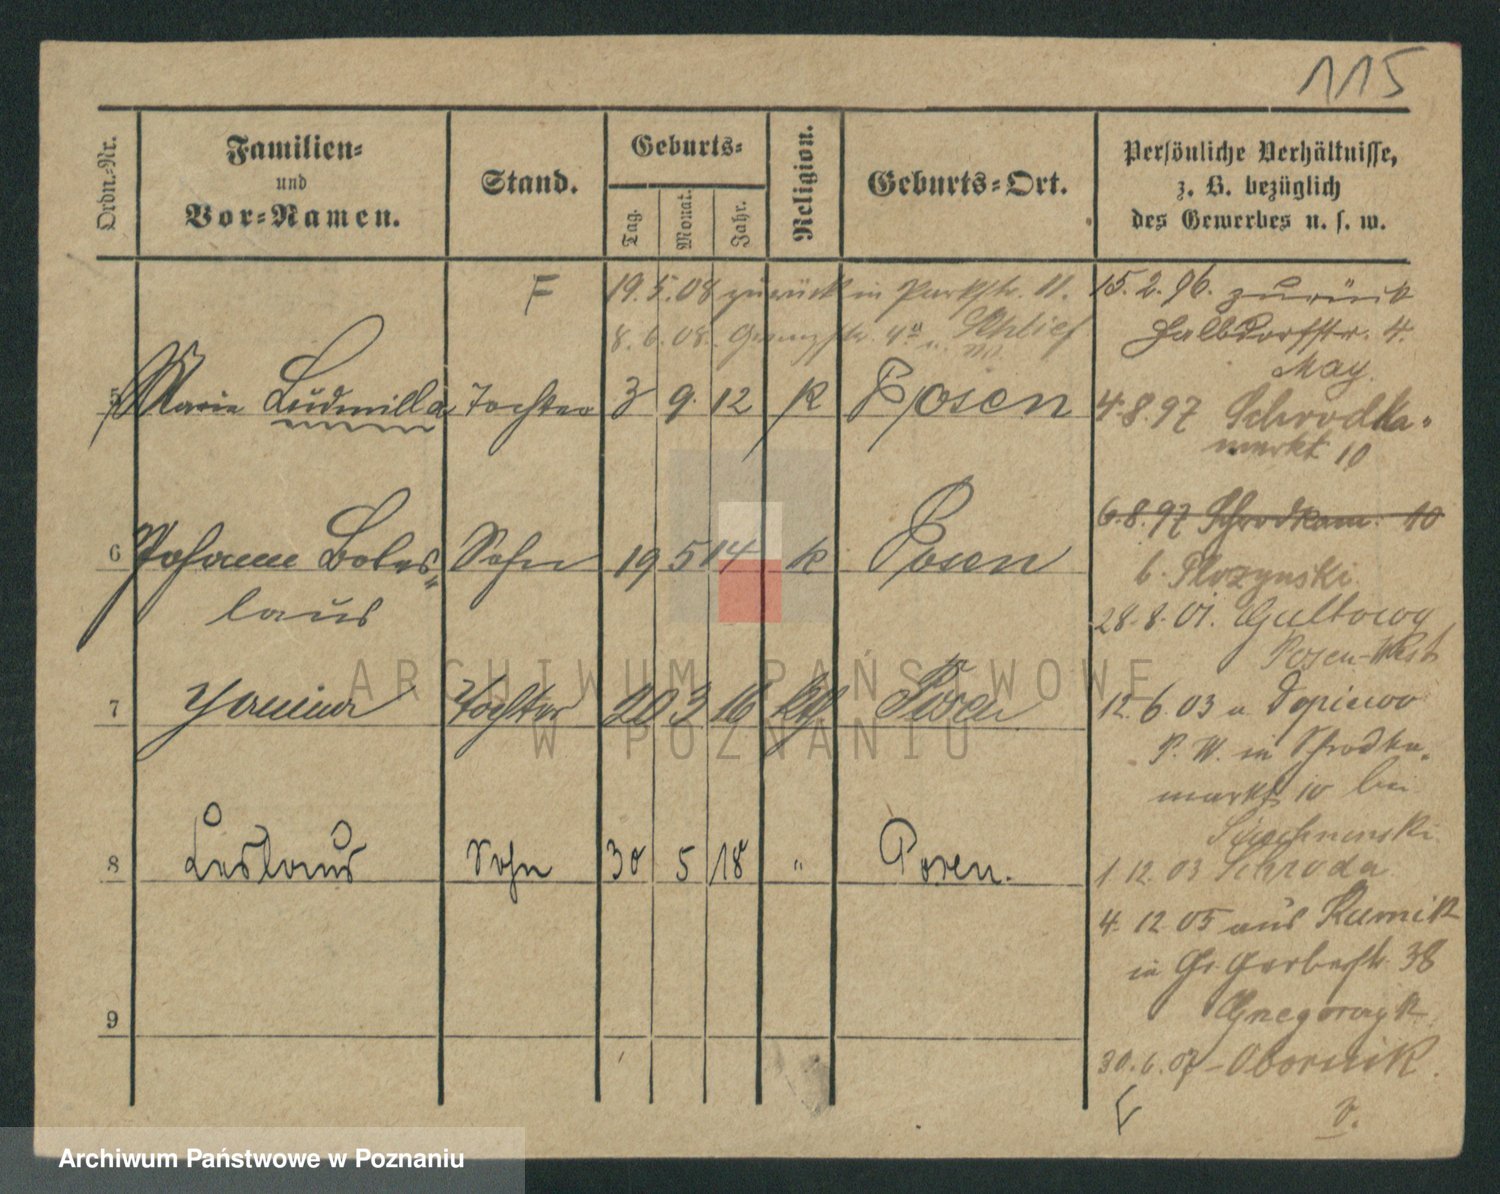 115
Ordn.-Nr.
Familien-
und
Vor-Namen.
Stand.
Geburts-
Tag.
Monat.
Jahr.
Religion.
Geburts-Ort.
Persönliche Verhältnisse,
z. B. bezüglich
des Gewerbes u. s. w.
F 19.5.08 zurück in Parkstr. 11.
8.6.08. Grenzstr. 4a
15.2.96. zurück
Halbdorfstr. 4.
May.
5 Marie Ludmilla Tochter 3 9. 12 k Posen
4.8.97 Schrodka-
markt 10
6.8.97 Schrodkam. 10
6 Johann Boles- Sohn 19 5 14 k Posen
laus
b. Plozynski
28.8.01. Gultowy
Posen-West
7 Janina Tochter 20 3 16 kth Posen
12.6.03 a Dopiewo
P. W. in Schrodka-
markt 10 bei
8 Leslaus Sohn 30 5 18 " Posen.
1.12.03 Schroda
4.12.05 aus Kurnik
in Gr. Gerberstr. 38
9
30.6.07 - Obornik.
v.
ARCHIWUM PAŃSTWOWE
W POZNANIU
Archiwum Państwowe w Poznaniu